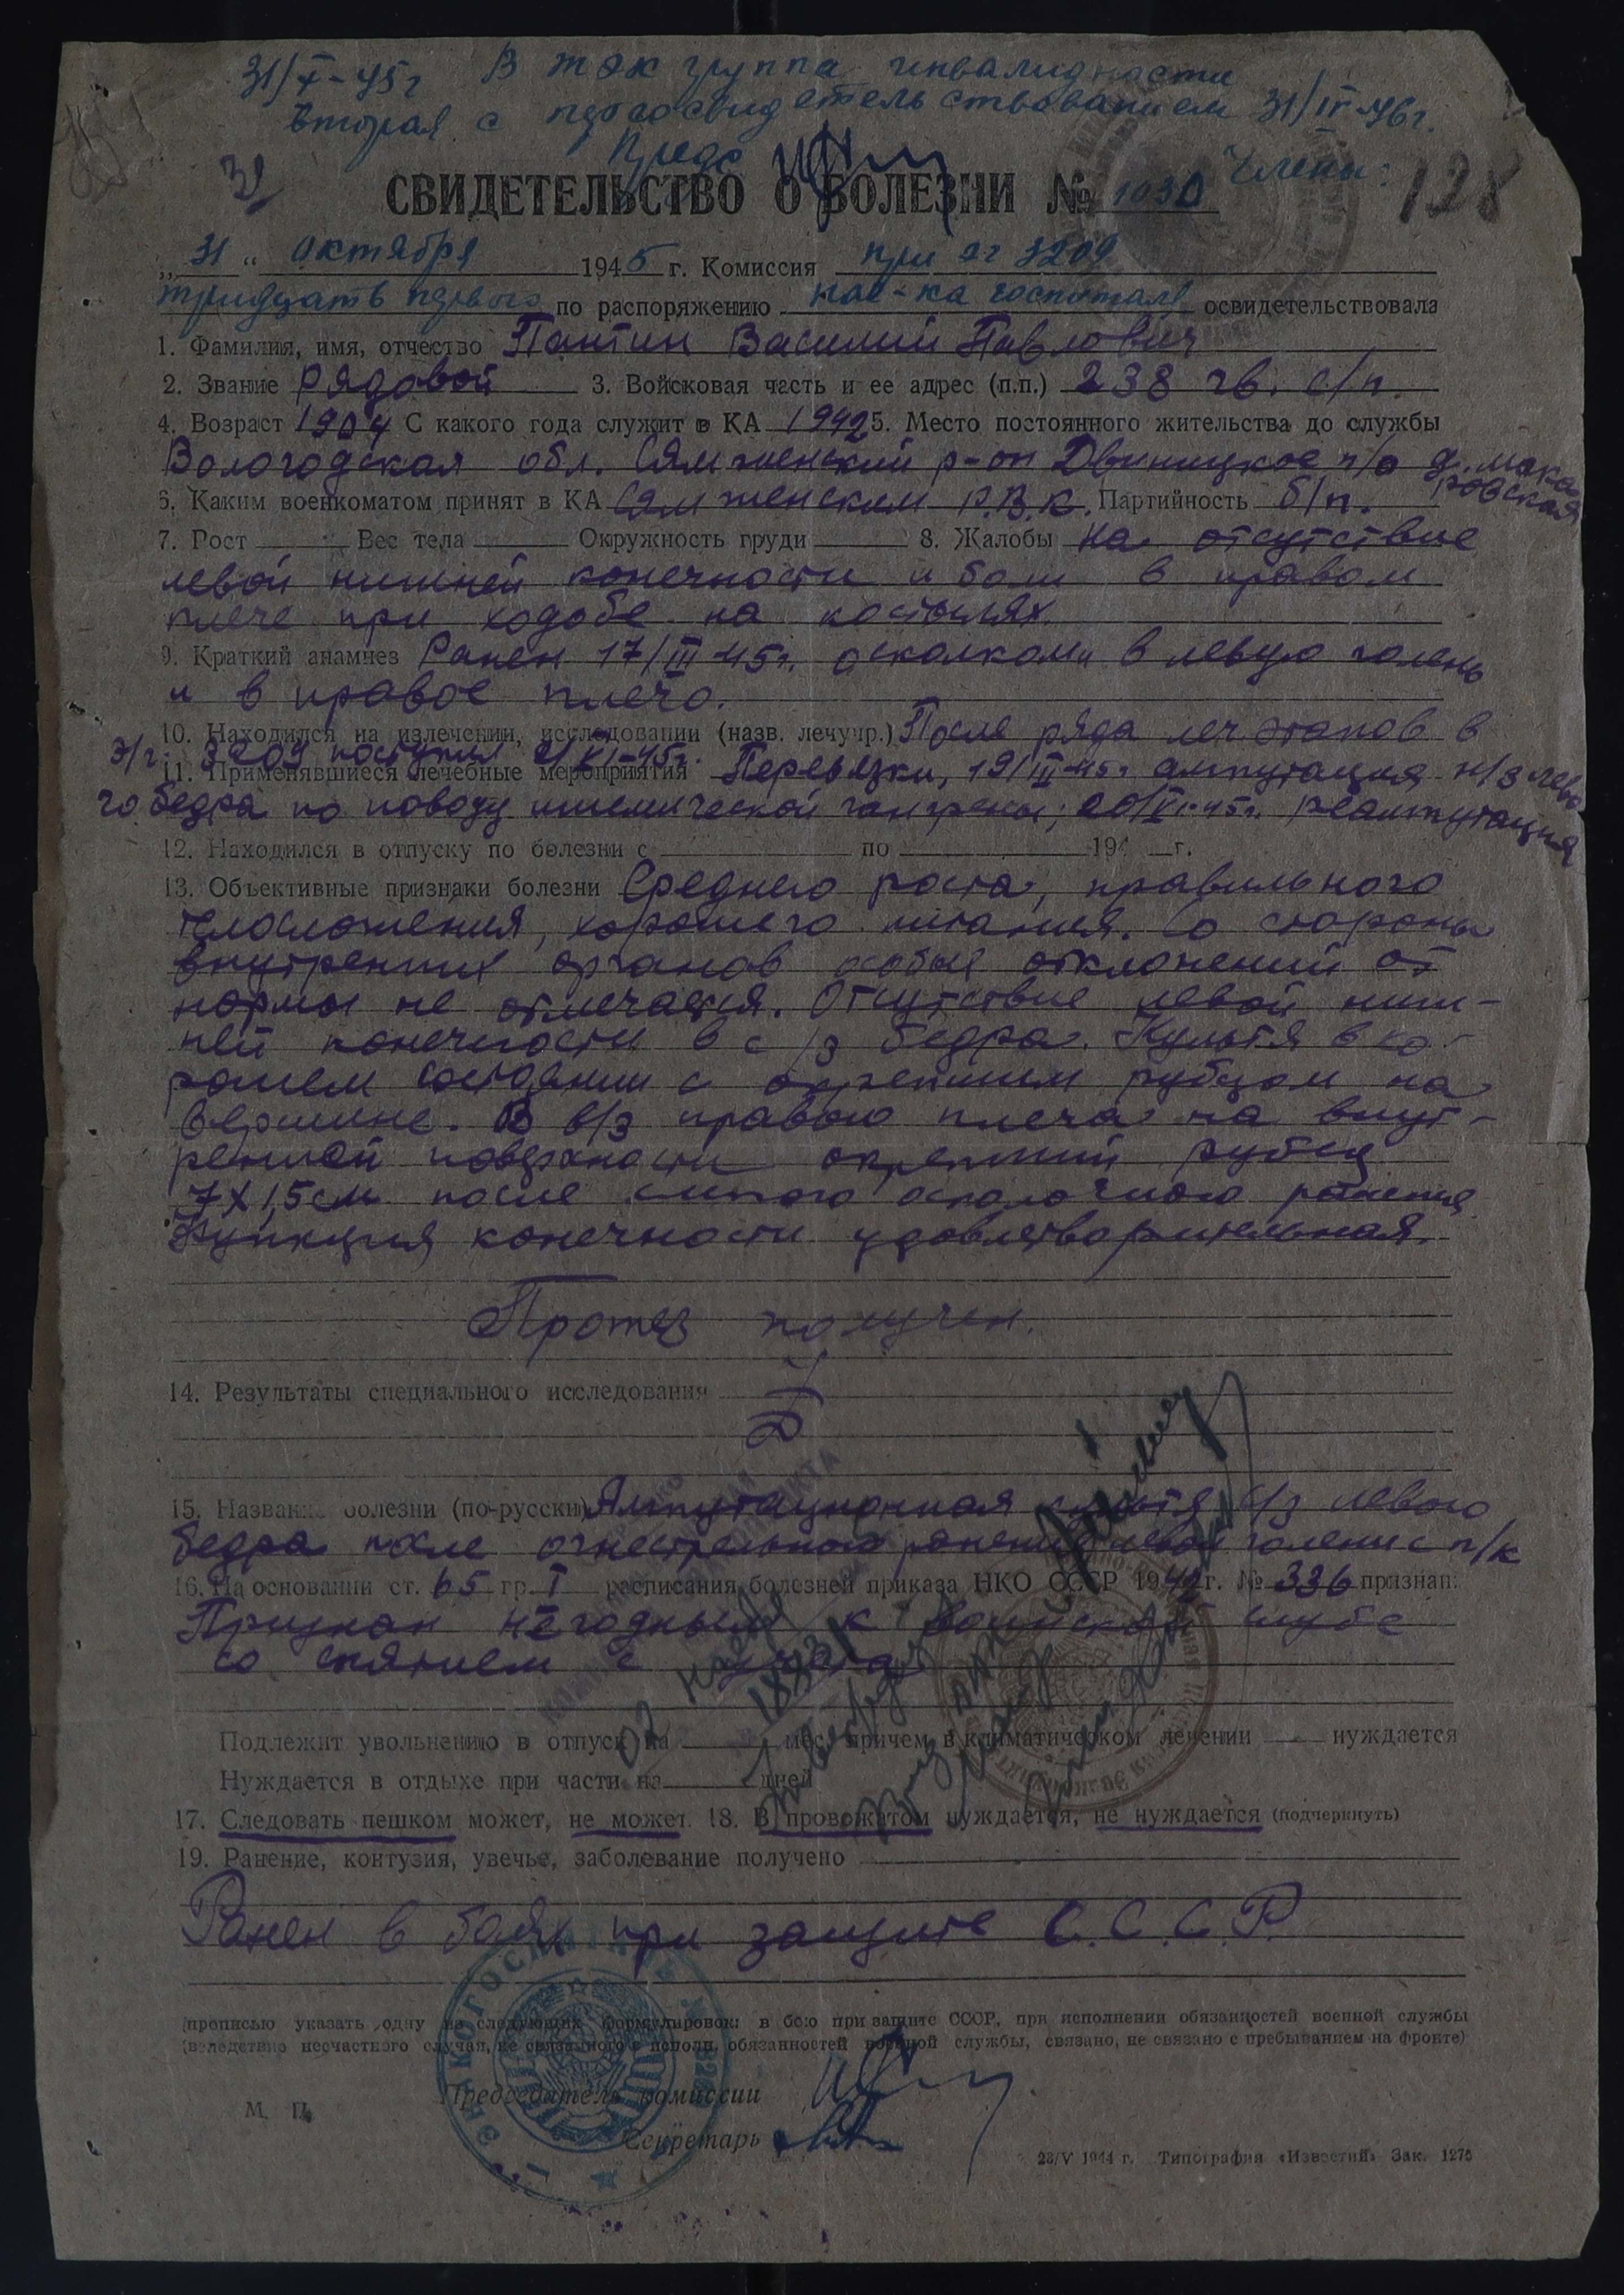 31/X-45г В ТЭК группа инвалидности
вторая с переосвидетельствованием 31/IV-46г.
Пред. Члены:
31 128
СВИДЕТЕЛЬСТВО О БОЛЕЗНИ № 1030
„31" октября 1945 г. Комиссия при эг 3209
тридцать первого по распоряжению нач-ка госпиталя освидетельствовала
1. Фамилия, имя, отчество Пантин Василий Павлович
2. Звание рядовой 3. Войсковая часть и ее адрес (п.п.) 238 гв. с/п.
4. Возраст 1904 С какого года служит в КА 1942 5. Место постоянного жительства до службы
Вологодская обл. Сямженский р-он Двиницкое п/о д. Мака-
ровская
6. Каким военкоматом принят в КА Сямженским Р.В.К. Партийность б/п.
7. Рост Вес тела Окружность груди 8. Жалобы на отсутствие
левой нижней конечности и боли в правом
плече при ходьбе на костылях.
9. Краткий анамнез Ранен 17/III-45г. осколками в левую голень
и в правое плечо.
10. Находился на излечении, исследовании (назв. лечучр.) После ряда леч этапов в
э/г 3209 поступил VI-45г.
11. Применявшиеся лечебные мероприятия Перевязки, 19/III-45г ампутация н/з лево
го бедра по поводу ишемической гангрены; 45г. реампутация
12. Находился в отпуску по болезни с по 194 г.
13. Объективные признаки болезни Среднего роста, правильного
телосложения, хорошего питания. Со стороны
внутренних органов особых отклонений от
нормы не отмечается. Отсутствие левой ниж-
ней конечности в с/з бедра. Культя в хо-
рошем состоянии с окрепшим рубцом на
вершине. В в/з правого плеча на внут-
ренней поверхности окрепший рубец
7х1,5см после слепого осколочного ранения
Функция конечности удовлетворительная.
Протез получен.
14. Результаты специального исследования
15. Название болезни (по-русски) Ампутационная культя с/з левого
бедра после огнестрельного ранения левой голени с п/к
16. На основании ст. 65 гр. I расписания болезней приказа НКО СССР 1942 г. № 336 признан:
Признан негодным к воинской службе
со снятием с учета
Подлежит увольнению в отпуск на мес. причем в климатическом лечении нуждается
Нуждается в отдыхе при части на дней
17. Следовать пешком может, не может. 18. В провожатом нуждается, не нуждается (подчеркнуть)
19. Ранение, контузия, увечье, заболевание получено
Ранен в боях при защите С.С.С.Р.
(прописью указать одну из следующих формулировок: в бою при защите СССР, при исполнении обязанностей военной службы
(вследствие несчастного случая, не связанного с исполн. обязанностей военной службы, связано, не связано с пребыванием на фронте)
Председатель комиссии
М. П.
Секретарь
23/V 1944 г. Типография «Известий» Зак. 1275